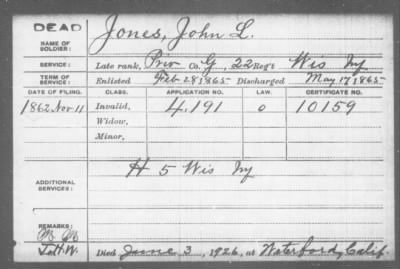 DEAD
Jones, John L.
NAME OF SOLDIER:
SERVICE: Late rank, Priv Co. G, 22 Reg't Wis Inf
TERM OF SERVICE: Enlisted Feb 28, 1865 Discharged May 17, 1865
DATE OF FILING. CLASS. APPLICATION NO. LAW. CERTIFICATE NO.
1862 Nov 11 Invalid, 4.191 o 10159
Widow,
Minor,
ADDITIONAL SERVICES: H 5 Wis Inf
REMARKS:
Died June 3, 1926, at Waterford, Calif.